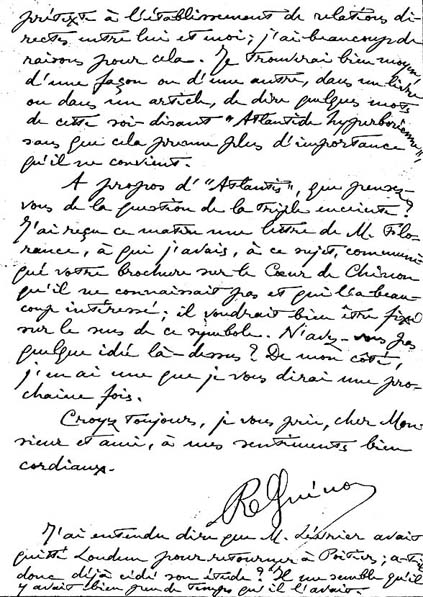 prétexte à l'établissement de relations di-
rectes entre lui et moi ; j'ai beaucoup de
raisons pour cela. Je trouverai bien moyen,
d'une façon ou d'une autre, dans un livre
ou dans un article, de dire quelques mots
de cette soi-disant "Atlantide hyperboréenne",
sans que cela prenne plus d'importance
qu'il ne convient.
A propos d'"Atlantis", que pensez-
vous de la question de la triple enceinte ?
J'ai reçu ce matin une lettre de M. Flo-
rance, à qui j'avais, à ce sujet, communi-
qué votre brochure sur le Cœur de Chinon
qu'il ne connaissait pas et qui l'a beau-
coup intéressé ; il voudrait bien être fixé
sur le sens de ce symbole. N'avez-vous pas
quelque idée là-dessus ? De mon côté,
j'en ai une que je vous dirai une pro-
chaine fois.
Croyez toujours, je vous prie, cher Mon-
sieur et ami, à mes sentiments bien
cordiaux.
René Guénon
J'ai entendu dire que M. Lévrier avait
quitté Loudun pour retourner à Poitiers ; a-t-il
donc déjà cédé son étude ? Il me semble qu'il
y avait bien peu de temps qu'il l'avait.